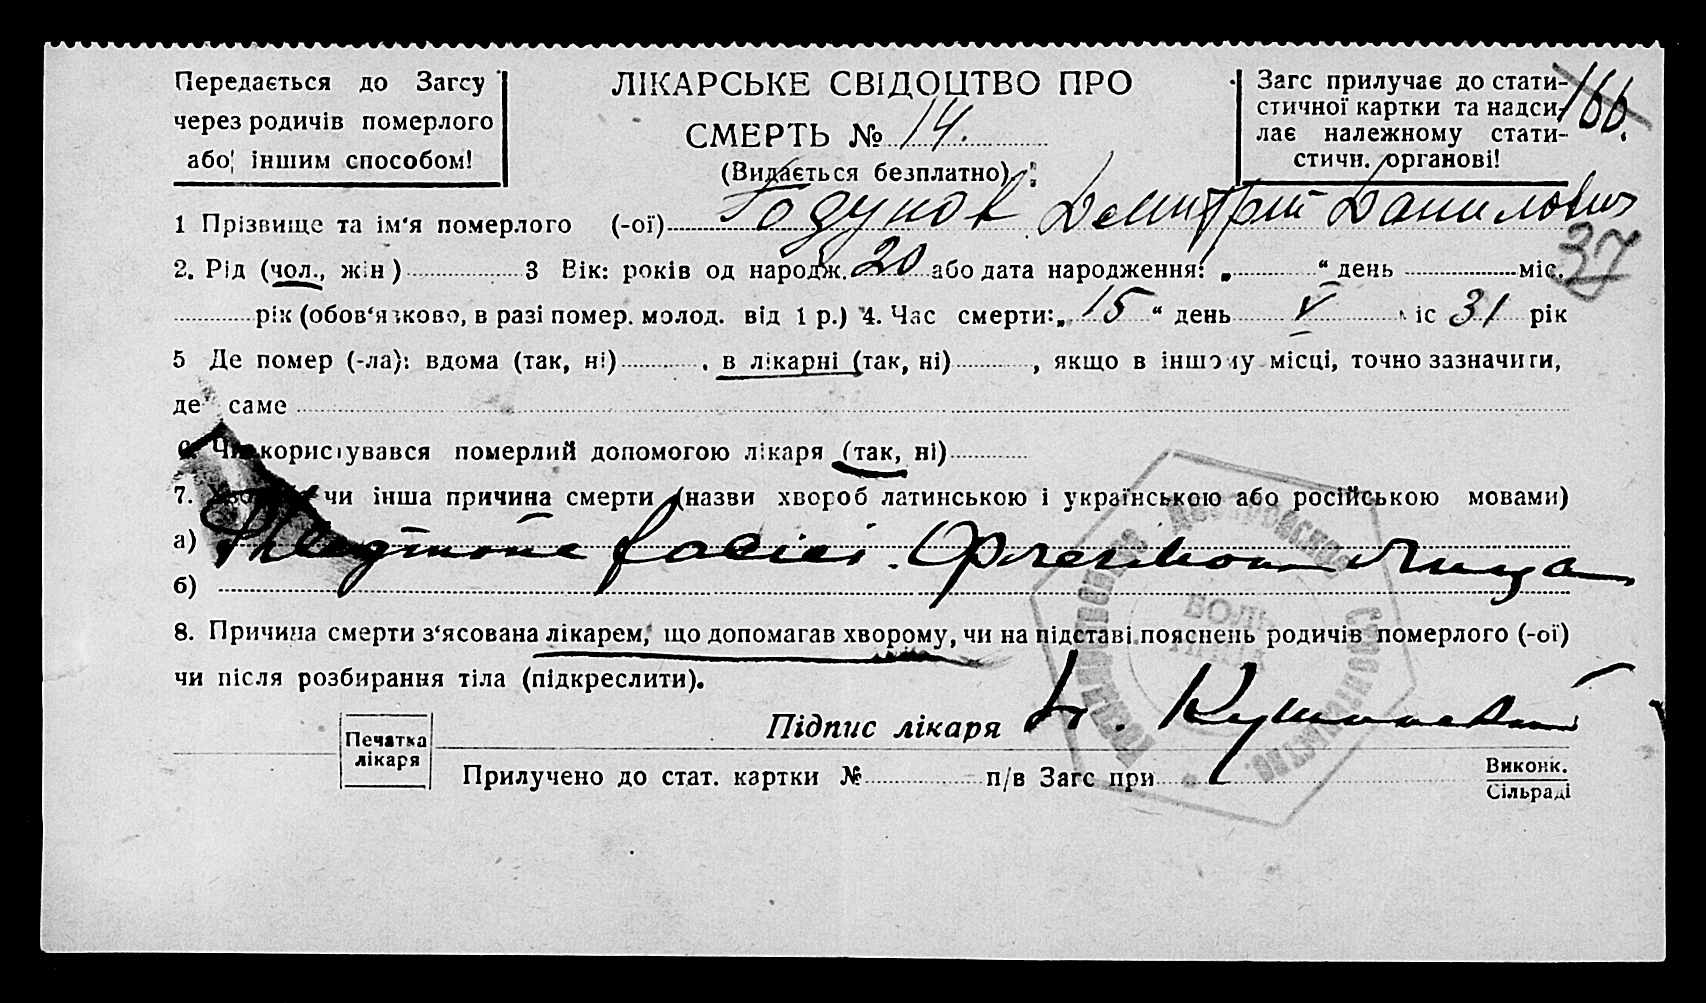 Передається до Загсу
через родичів померлого
або іншим способом!
ЛІКАРСЬКЕ СВІДОЦТВО ПРО
СМЕРТЬ № 14.
(Видається безплатно)
Загс прилучає до стати-
стичної картки та надси-
лає належному стати-
стичн. органові!
166.
1 Прізвище та ім'я померлого (-ої) Годунов Дмитрий Данилович
37
2. Рід (чол., жін) 3 Вік: років од народж. 20 або дата народження: „ “ день міс.
рік (обов'язково, в разі помер. молод. від 1 р.) 4. Час смерти: „ 15 “ день V іс 31 рік
5 Де помер (-ла): вдома (так, ні) , в лікарні (так, ні) , якщо в іншому місці, точно зазначити,
де саме
6. Чи користувався померлий допомогою лікаря (так, ні)
7. чи інша причина смерти (назви хвороб латинською і українською або російською мовами)
а) Phlegmone faciei. Флегмона лица
б)
8. Причина смерти з'ясована лікарем, що допомагав хворому, чи на підставі пояснень родичів померлого (-ої)
чи після розбирання тіла (підкреслити).
Підпис лікаря
Печатка
лікаря
Прилучено до стат. картки № п/в Загс при
Виконк.
Сільраді